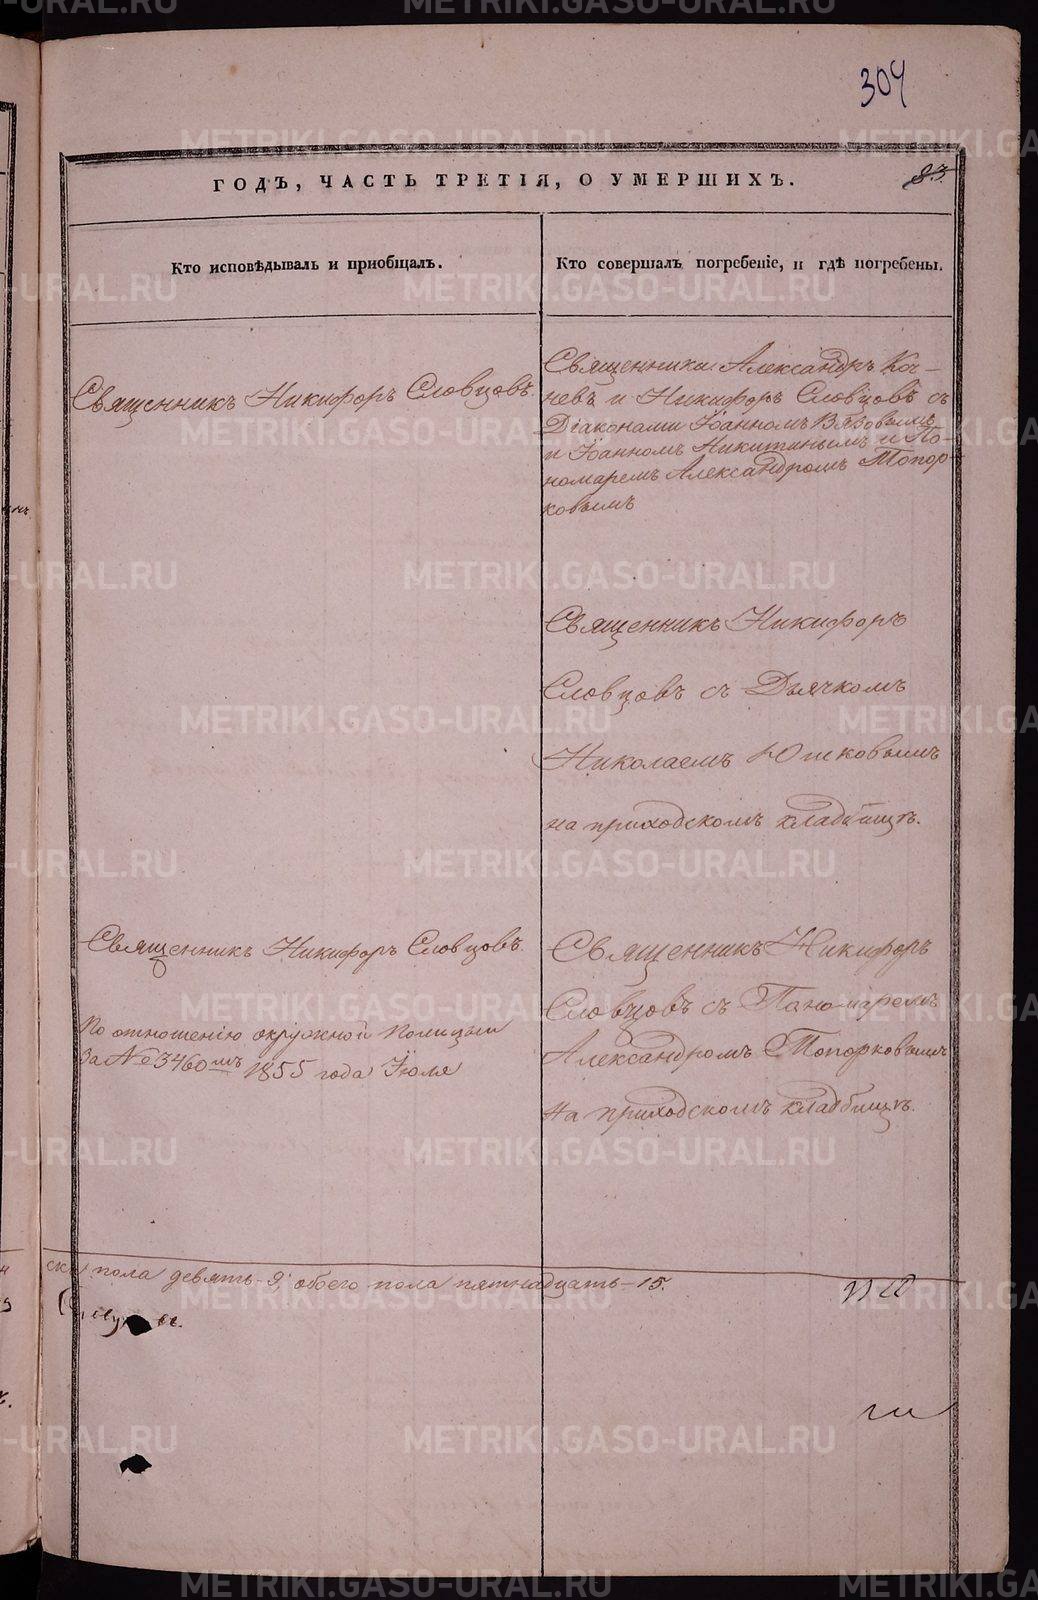 304
83.
ГОДЪ, ЧАСТЬ ТРЕТІЯ, О УМЕРШИХЪ.
Кто исповѣдывалъ и пріобщалъ.
Кто совершалъ погребеніе, и гдѣ погребены.
Священникъ Никифоръ Словцовъ.
Священники Александръ Коч-
невъ и Никифоръ Словцовъ съ
Діаконами Іоанномъ Вязовымъ
и Іоанномъ Никитинымъ и По-
номаремъ Александромъ Топор-
ковымъ
Священникъ Никифоръ
Словцовъ съ Дьячкомъ
Николаемъ Юшковымъ
на приходскомъ кладбищѣ.
Священникъ Никифоръ Словцовъ.
По отношенію окружной Полиціи
За № 3460мъ 1855 года Іюля
Священникъ Никифоръ
Словцовъ съ Паномаремъ
Александромъ Топорковымъ
на приходскомъ кладбищѣ.
ска пола девять-9, обоего пола пятнадцать-15.
METRIKI.GASO-URAL.RU